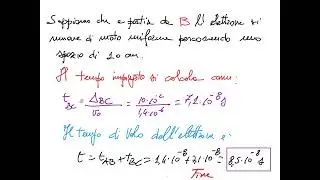 Supponiamo che a partire da B l'elettrone si
muova di moto uniforme percorrendo uno
spazio di 10 cm.
Il tempo impiegato si calcola come:
t_BC = Δ_BC / v₀ = 10·10⁻² / 1,4·10⁶ = 7,1·10⁻⁸ s
Il tempo di volo dell'elettrone è:
t = t_AB + t_BC = 1,4·10⁻⁸ + 7,1·10⁻⁸ = 8,5·10⁻⁸ s
Fine